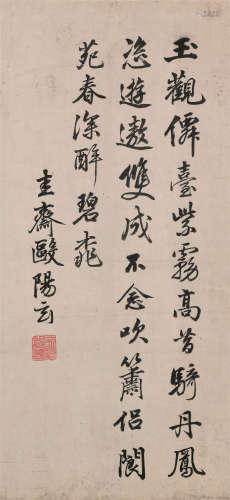 玉觀僊臺紫霧高昔騎丹鳳
恣遊遨雙成不念吹簫侶閬
苑春深醉碧桃
圭齋歐陽玄